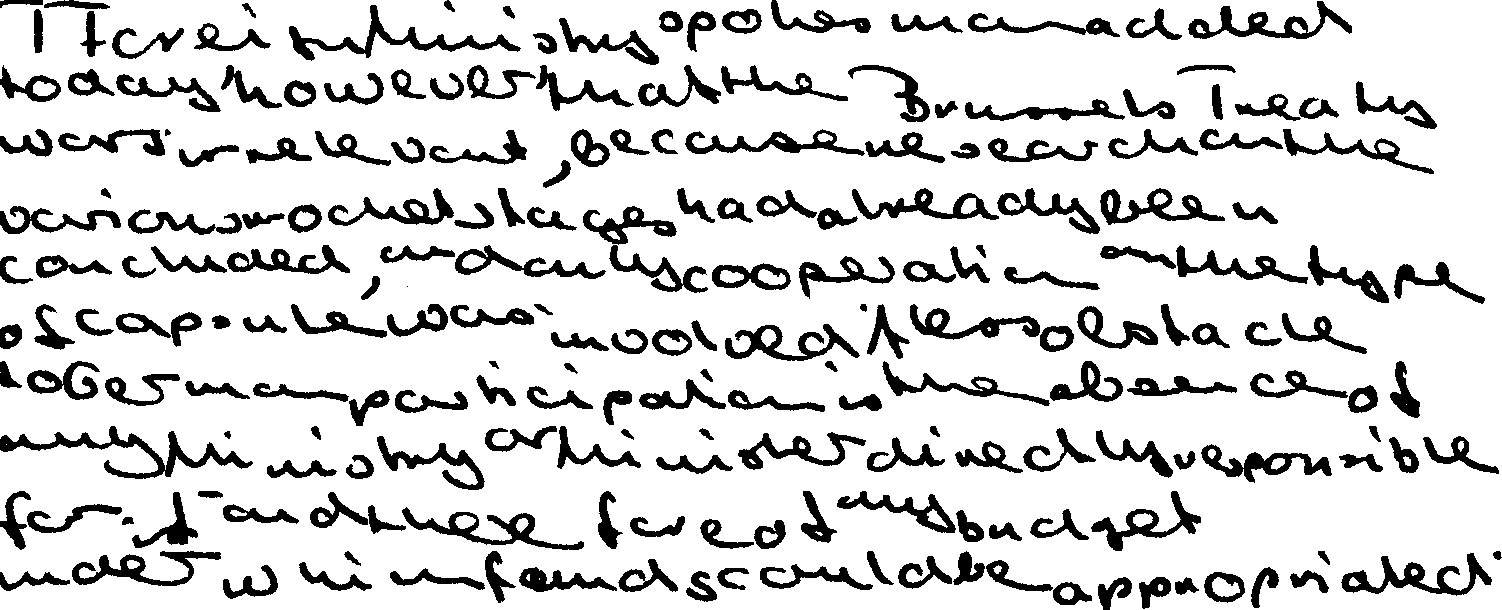 A Foreign Ministry spokesman added
today, however, that the Brussels Treaty
was irrelevant, because research on the
various rocket stages had already been
concluded, and only cooperation on the type
of capsule was involved. A less obstacle
to German participation is the absence of
any Ministry or Minister directly responsible
for it and therefore of any budget
under which funds could be appropriated.